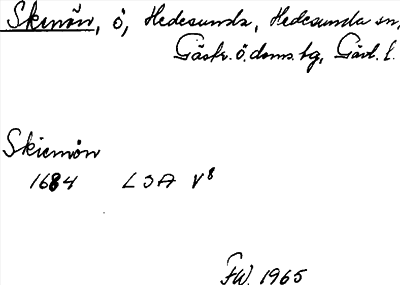 Skenön, ö, Hedesunda, Hedesunda sn,
Gästr. ö. doms. tg, Gävl. l.
Skiemön
1684 LSA V8
FW. 1965